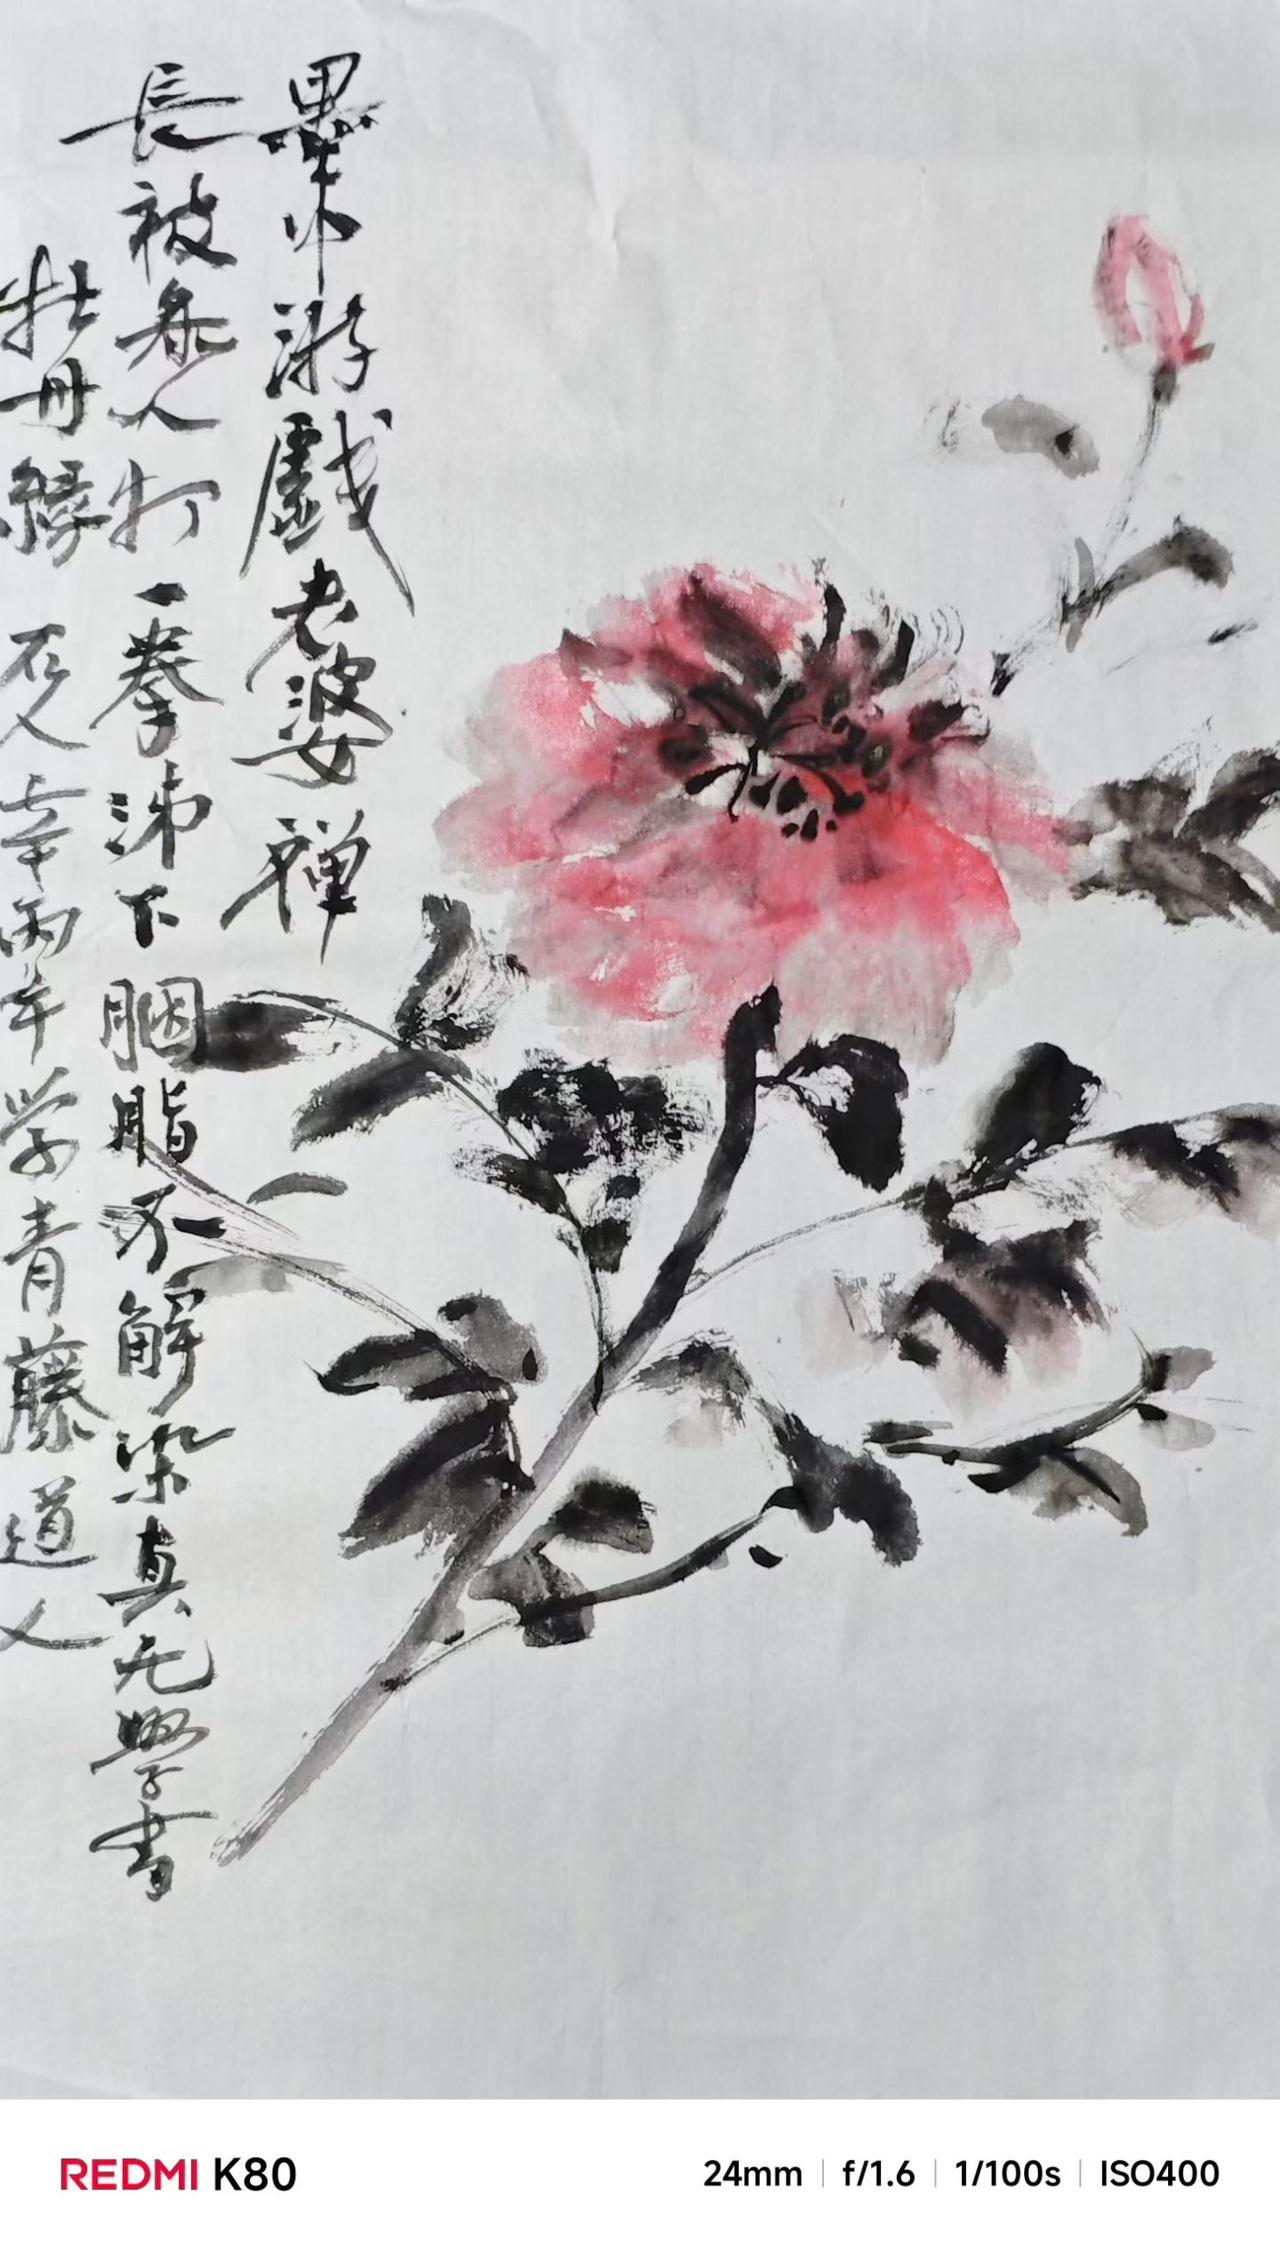 墨中游戲老婆禪
長被參人打一拳涕下胭脂不解染真元學書
牡丹緣 石人幸丙午学青藤道人
REDMI K80
24mm | f/1.6 | 1/100s | ISO400